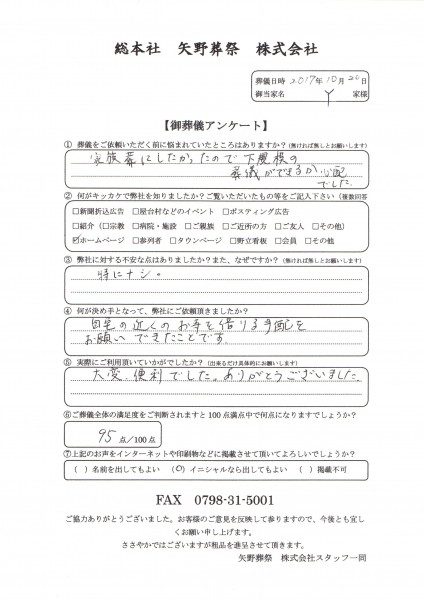 総本社 矢野葬祭 株式会社
葬儀日時 2017年10月20日
御当家名 Y 家様
【御葬儀アンケート】
① 葬儀をご依頼いただく前に悩まれていたところはありますか？(無ければ無しとお願いします)
家族葬にしたかったので 下規模の
葬儀ができるか 心配
でした
② 何がキッカケで弊社を知りましたか？ご覧いただいたもの等をご記入下さい（複数回答
□新聞折込広告 □屋台村などのイベント □ポスティング広告
□紹介（□宗教 □病院・施設 □ご親族 □ご近所の方 □ご友人 □その他）
☑ホームページ □参列者 □タウンページ □野立看板 □会員 □その他
③ 弊社に対する不安な点はありましたか？また、なぜですか？(無ければ無しとお願いします)
特にナシ。
④ 何が決め手となって、弊社にご依頼頂きましたか？
自宅の近くのお寺を借りる手配を
お願いできたことです。
⑤ 実際にご利用頂いていかがでしたか？(出来るだけ具体的にお願いします)
大変 便利でした。ありがとうございました。
⑥ご葬儀全体の満足度をご判断されますと100点満点中で何点になりますでしょうか？
95 点/100点
⑦上記のお声をインターネットや印刷物などに掲載させて頂いてよろしいでしょうか？
（ ）名前を出してもよい （○）イニシャルなら出してもよい （ ）掲載不可
FAX 0798-31-5001
ご協力ありがとうございました。お客様のご意見を反映して参りますので、今後とも宜し
くお願い申し上げます。
ささやかではございますが粗品を進呈させて頂きます。
矢野葬祭 株式会社スタッフ一同